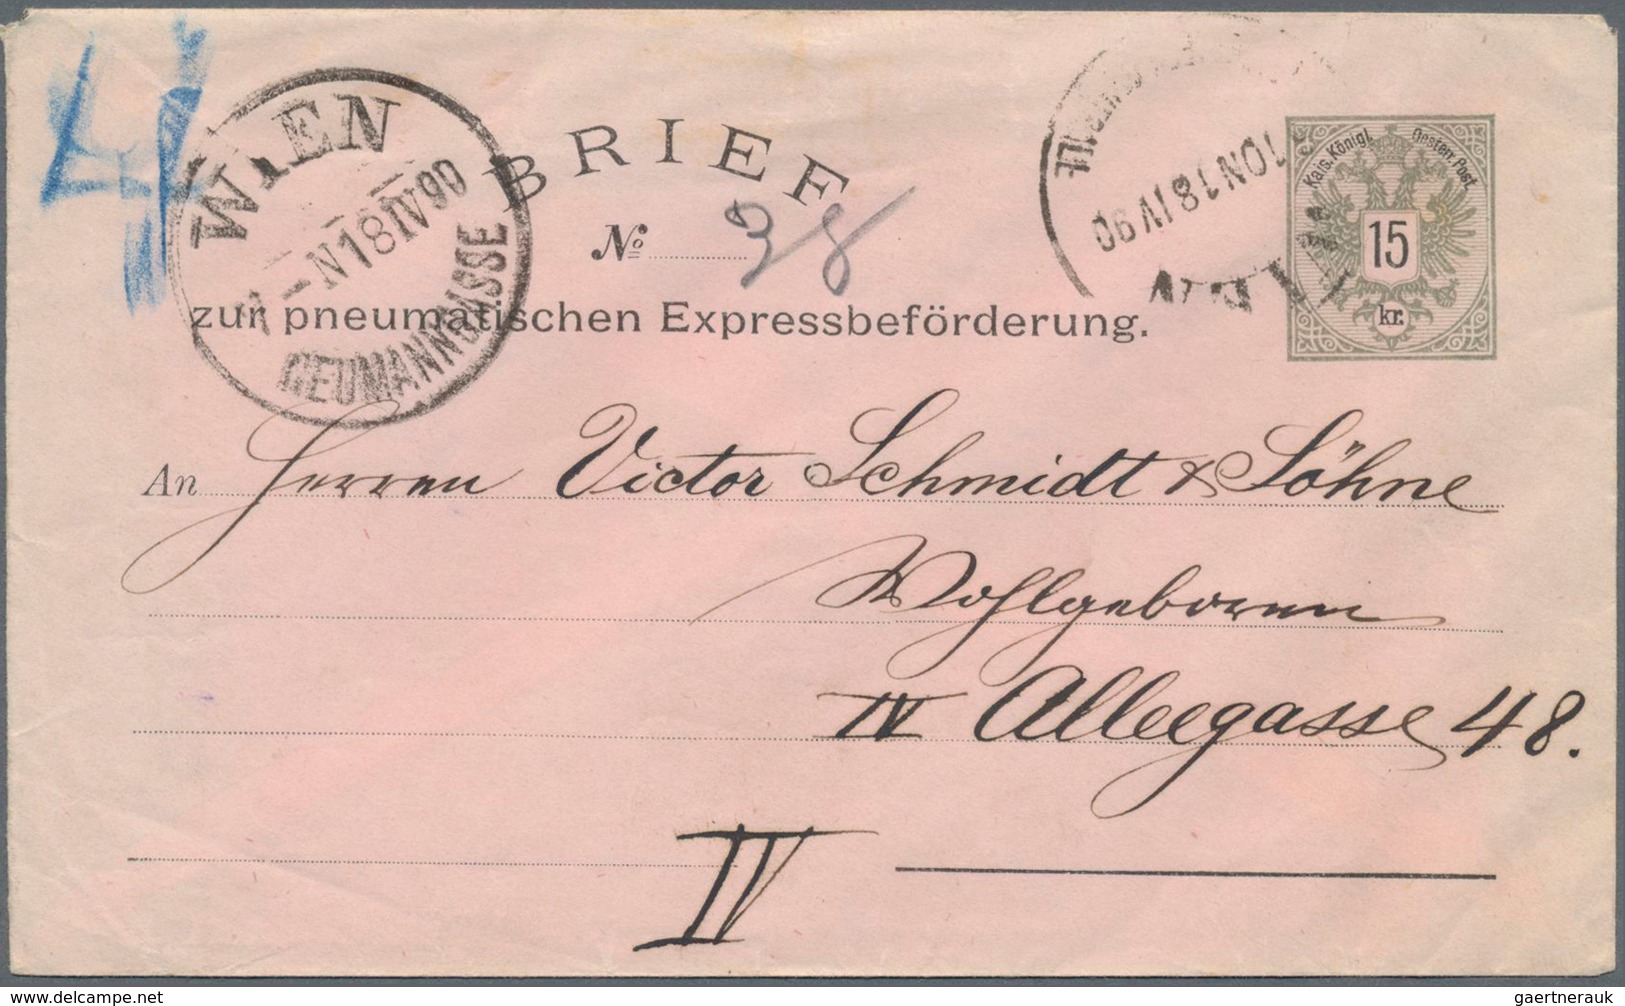 WIEN
1-N 18 IV 90
NEUMANNGASSE
BRIEF
No. 38
zur pneumatischen Expressbeförderung.
10N 18 IV 90
WIEN
Kais. Königl. Oesterr. Post.
15
kr.
An Herren Victor Schmidt & Söhne
Wohlgeboren
IV Alleegasse 48.
IV
www.delcampe.net
gaertnerauk